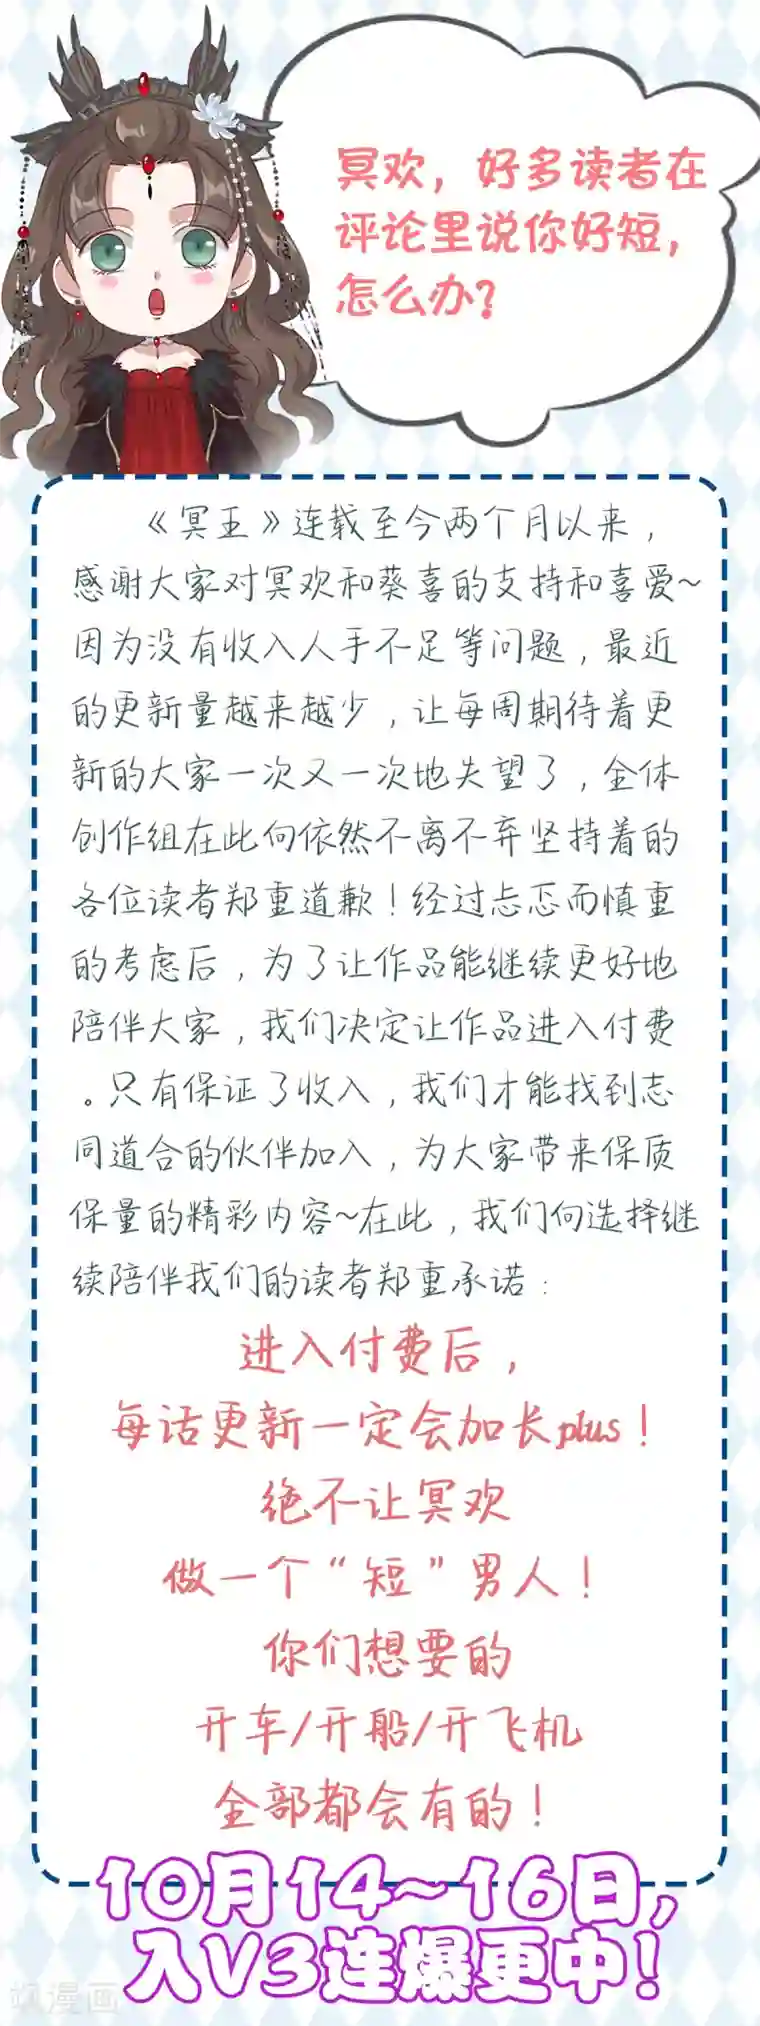 冥欢，好多读者在
评论里说你好短，
怎么办？
《冥王》连载至今两个月以来，
感谢大家对冥欢和葵喜的支持和喜爱~
因为没有收入人手不足等问题，最近
的更新量越来越少，让每周期待着更
新的大家一次又一次地失望了，全体
创作组在此向依然不离不弃坚持着的
各位读者郑重道歉！经过忐忑而慎重
的考虑后，为了让作品能继续更好地
陪伴大家，我们决定让作品进入付费
。只有保证了收入，我们才能找到志
同道合的伙伴加入，为大家带来保质
保量的精彩内容~在此，我们向选择继
续陪伴我们的读者郑重承诺：
进入付费后，
每话更新一定会加长plus！
绝不让冥欢
做一个“短”男人！
你们想要的
开车/开船/开飞机
全部都会有的！
10月14~16日，
入V3连爆更中！
飒漫画